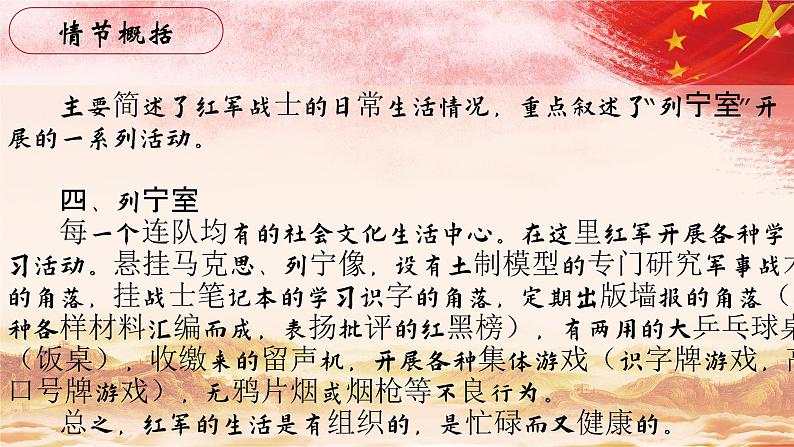 情节概括
主要简述了红军战士的日常生活情况，重点叙述了“列宁室”开
展的一系列活动。
四、列宁室
每一个连队均有的社会文化生活中心。在这里红军开展各种学
习活动。悬挂马克思、列宁像，设有土制模型的专门研究军事战术
的角落，挂战士笔记本的学习识字的角落，定期出版墙报的角落（
种各样材料汇编而成，表扬批评的红黑榜），有两用的大乒乓球桌
（饭桌），收缴来的留声机，开展各种集体游戏（识字牌游戏，高
口号牌游戏），无鸦片烟或烟枪等不良行为。
总之，红军的生活是有组织的，是忙碌而又健康的。